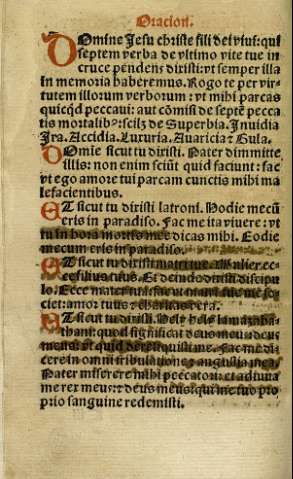 Oracion.
Domine Jesu christe fili dei vivi: qui
septem verba de vltimo vite tue in
cruce pendens dixisti: vt semper illa
in memoria haberemus. Rogo te per vir
tutem illorum verborum: vt mihi parcas
quicqd peccaui: aut cōmisi de septē pecca
tis mortalibꝰ: scilz de Superbia. Inuidia
Ira. Accidia. Luxuria. Auaricia ⁊ Gula.
Domīe sicut tu dixisti. Pater dimitte
illis: non enim sciūt quid faciunt: fac
vt ego amore tui parcam cunctis mihi ma
lefacientibus.
Et sicut tu dixisti latroni. Hodie mecū
eris in paradiso. Fac me ita viuere: vt
tu in hora mortis mee dicas mihi. Hodie
mecum eris in paradiso.
Et sicut tu dixisti matri tue. Mulier ec
ce filius tuus. Et deinde dixisti discipu
lo. Ecce mater tua: fac vt matri tue me so
ciet: amor tuus ⁊ charitas vera.
Et sicut tu dixisti. Hely hely lamazaba
thani: quod significat deus meus: deus
meus: vt quid dereliquisti me. Fac me di
cere in omni tribulatione ⁊ angustia mea.
Pater miserere mihi peccatori: et adiuua
me rex meus: ⁊ deus meus: qui me tuo pro
prio sanguine redemisti.